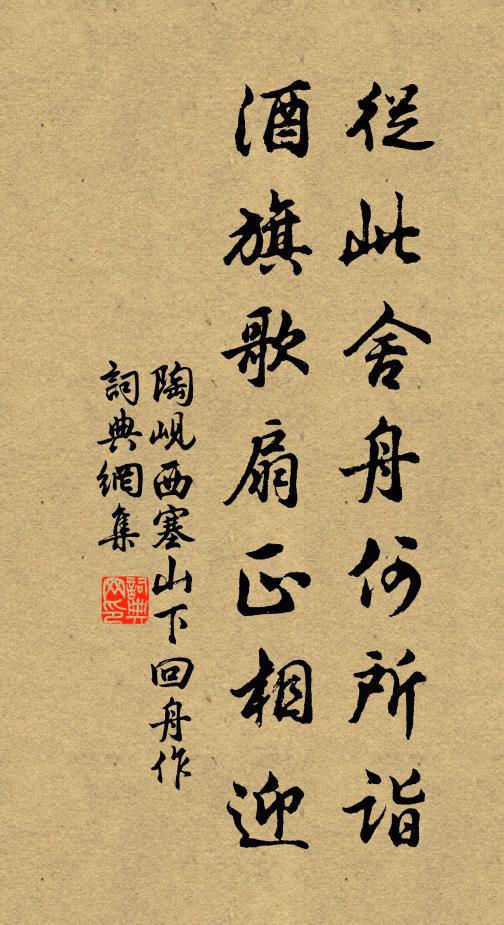 從此舍舟何所詣
酒旗歌扇正相迎
陶峴西塞山下回舟作
詞典網集
詞典網印